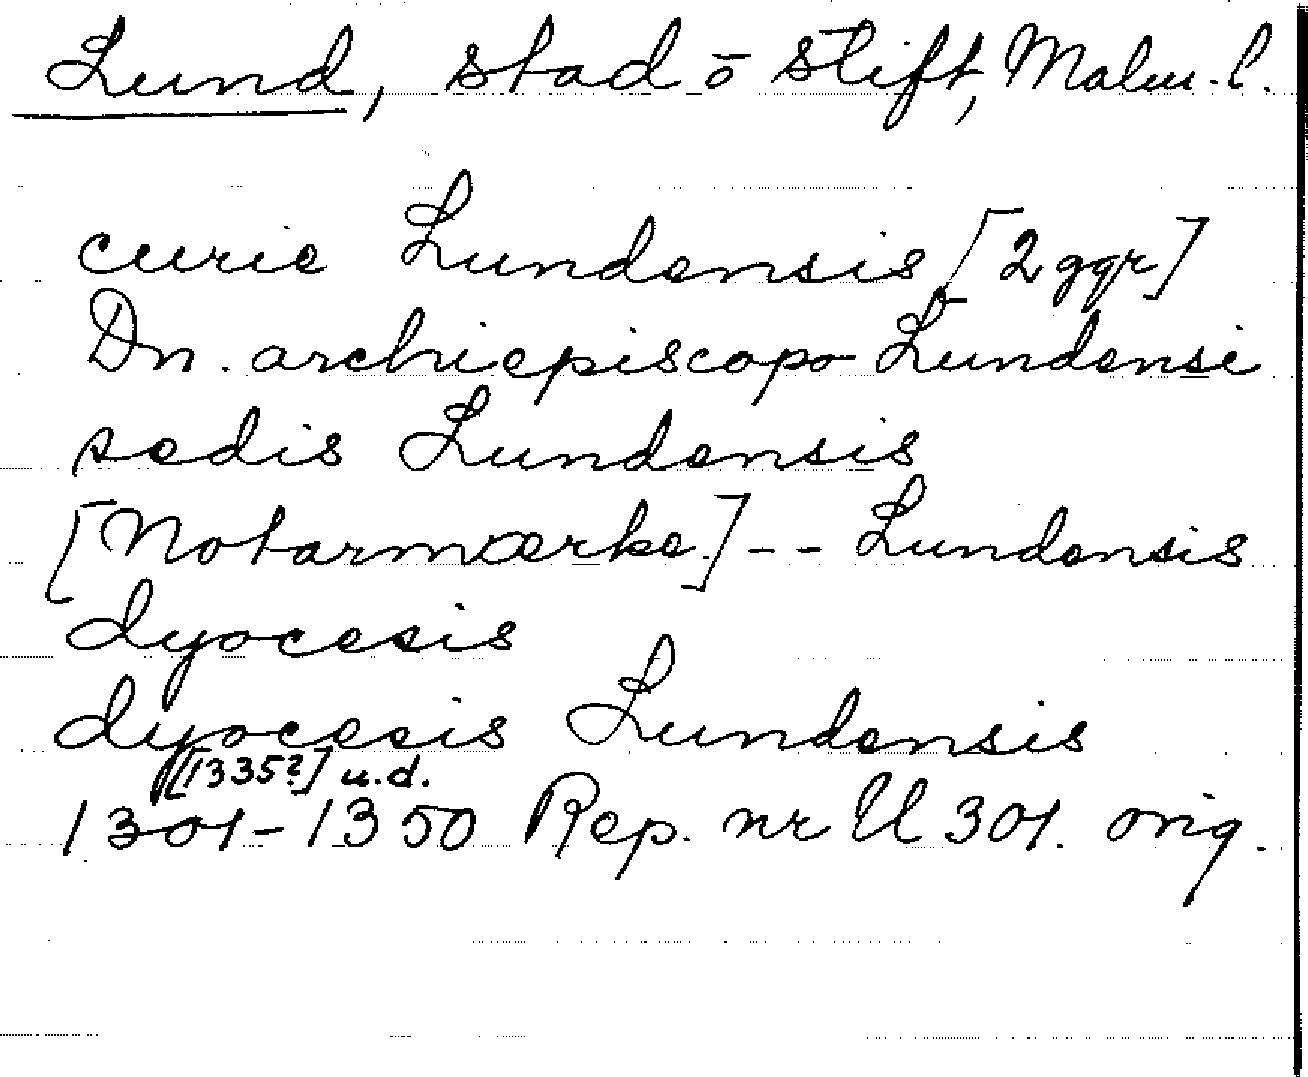 Lund, stad o stift, Malm. l.
curie Lundensis [2 ggr]
Dn. archiepiscopo Lundensi
sedis Lundensis
[Notarmærke] -- Lundensis
dyocesis
dyocesis Lundensis
[1335?] u.d.
1301-1350 Rep. nr U 301. orig.